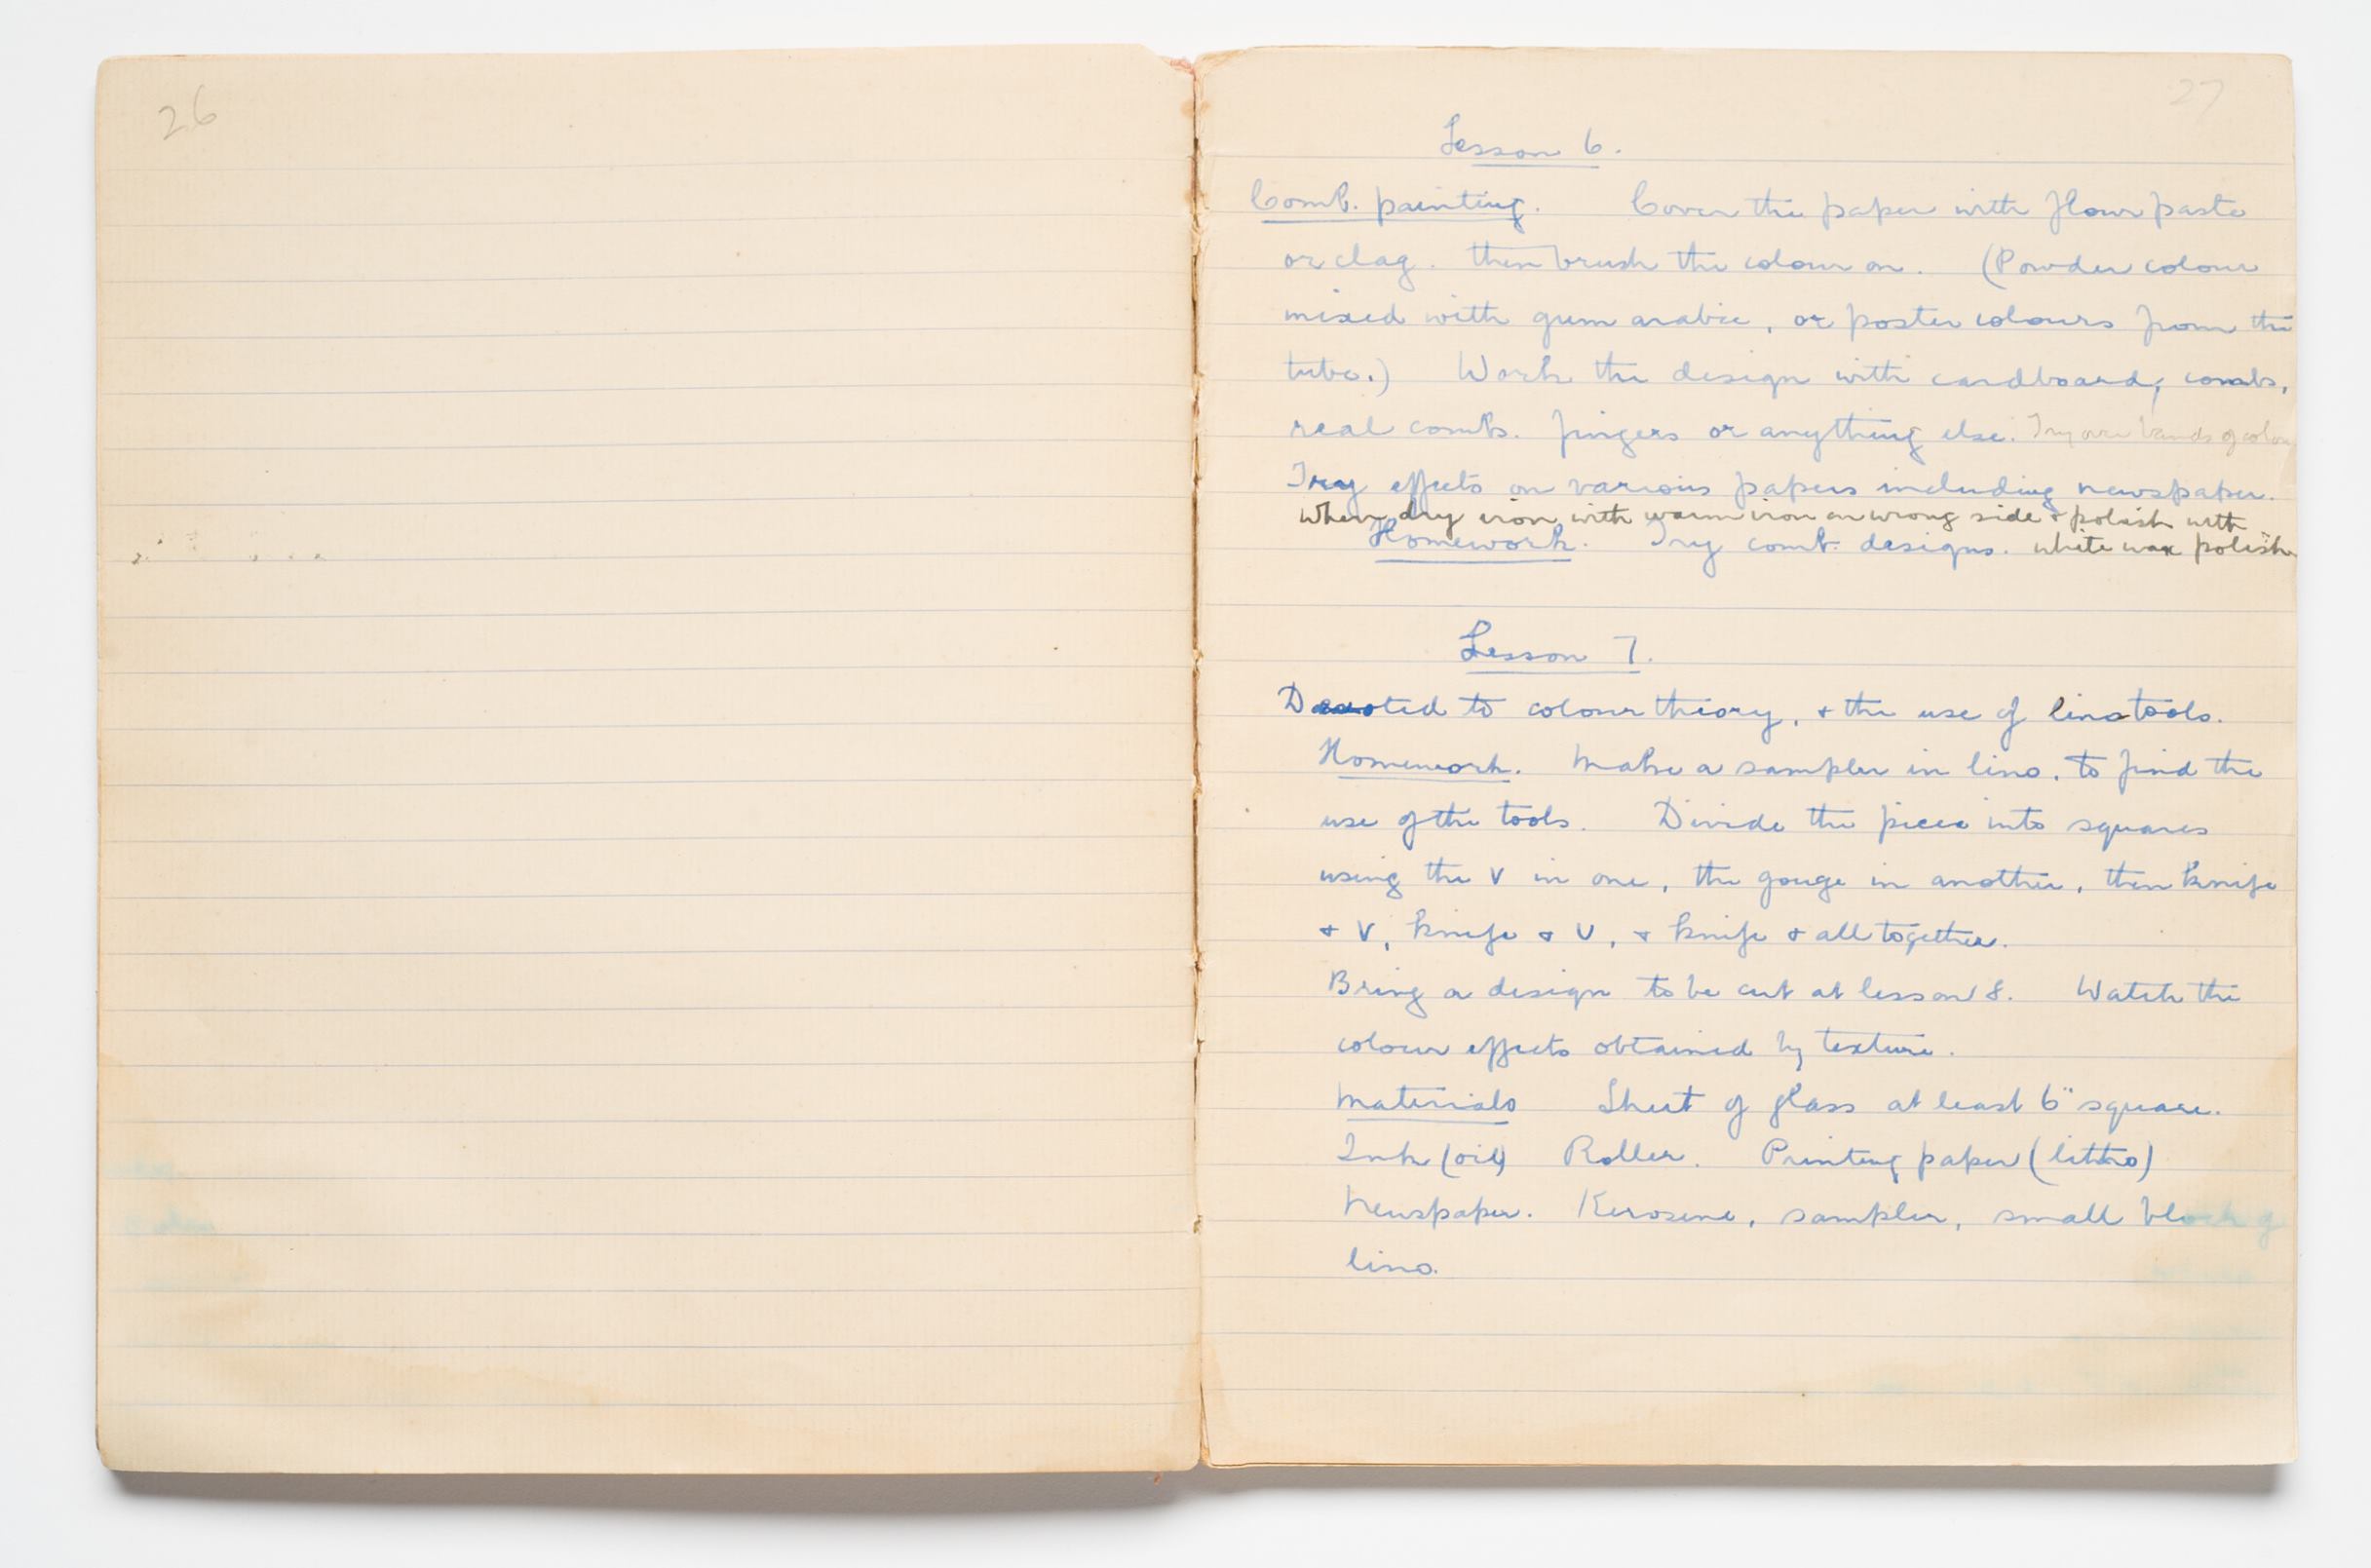 26
27
Lesson 6.
Comb. painting. Cover the paper with flour paste
or clag. then brush the colour on. (Powder colour
mixed with gum arabic, or poster colours from the
tube.) Work the design with cardboard, combs,
real combs. fingers or anything else. Try over bands of colour
Try effects on various papers including newspaper.
When dry iron with warm iron on wrong side & polish with
Homework. Try comb. designs. white wax polish
Lesson 7.
Devoted to colour theory, & the use of lino tools.
Homework. Make a sampler in lino, to find the
use of the tools. Divide the piece into squares
using the V in one, the gouge in another, then knife
& V, knife & U, & knife & all together.
Bring a design to be cut at lesson 8. Watch the
colour effects obtained by texture.
Materials Sheet of glass at least 6" square.
Ink (oil) Roller. Printing paper (litho)
Newspaper. Kerosene, sampler, small block of
lino.